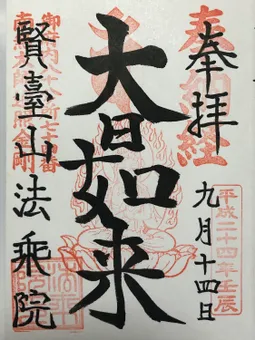 奉拝
奉納経
平成二十四年壬辰
九月十四日
大日如来
賢臺山法乗院